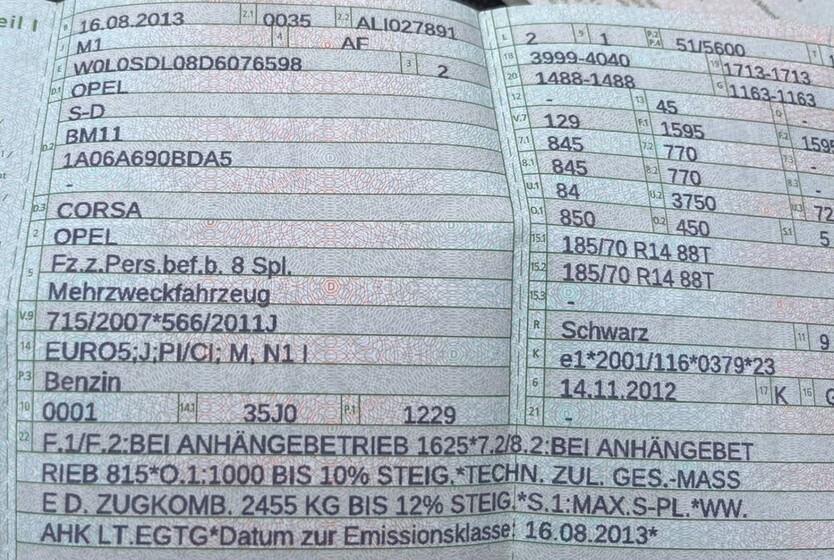 eil I
B 16.08.2013 2.1 0035 2.2 ALI027891
J M1 4 AF
E W0L0SDL08D6076598 3 2
D.1 OPEL
S-D
BM11
D.2 1A06A690BDA5
-
D.3 CORSA
2 OPEL
5 Fz.z.Pers.bef.b. 8 Spl.
Mehrzweckfahrzeug
V.9 715/2007*566/2011J
14 EURO5;J;PI/CI; M, N1 I
P.3 Benzin
10 0001 14.1 35J0 P.1 1229
22 F.1/F.2:BEI ANHÄNGEBETRIEB 1625*7.2/8.2:BEI ANHÄNGEBET
RIEB 815*O.1:1000 BIS 10% STEIG.*TECHN. ZUL. GES.-MASS
E D. ZUGKOMB. 2455 KG BIS 12% STEIG.*S.1:MAX.S-PL.*WW.
AHK LT.EGTG*Datum zur Emissionsklasse: 16.08.2013*
L 2 9 1 P.2 P.4 51/5600 T
18 3999-4040 19 1713-1713
20 1488-1488 G 1163-1163
12 - 13 45 Q -
V.7 129 F.1 1595 F.2 1595
7.1 845 7.2 770 7.3 -
8.1 845 8.2 770 8.3 -
U.1 84 U.2 3750 U.3 72
O.1 850 O.2 450 S.1 5
15.1 185/70 R14 88T
15.2 185/70 R14 88T
15.3 -
R Schwarz 11 9
K e1*2001/116*0379*23
6 14.11.2012 17 K 16 G
21 -